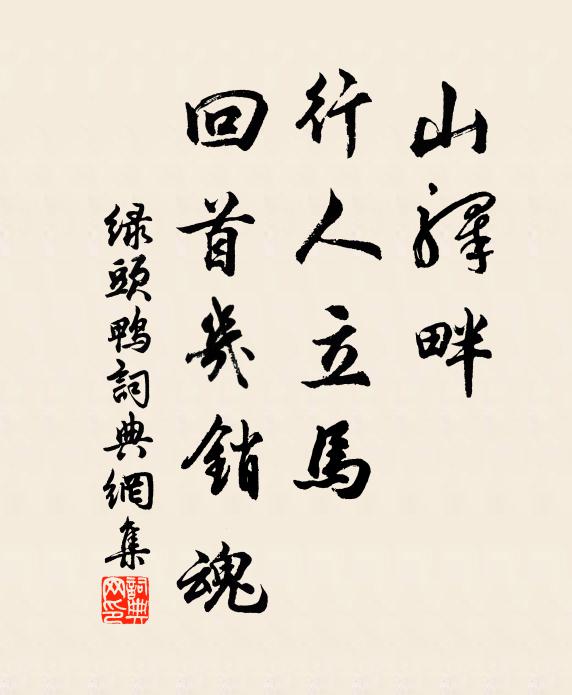 山驛畔
行人立馬
回首幾銷魂
緑頭鴨詞典網集
詞典網印